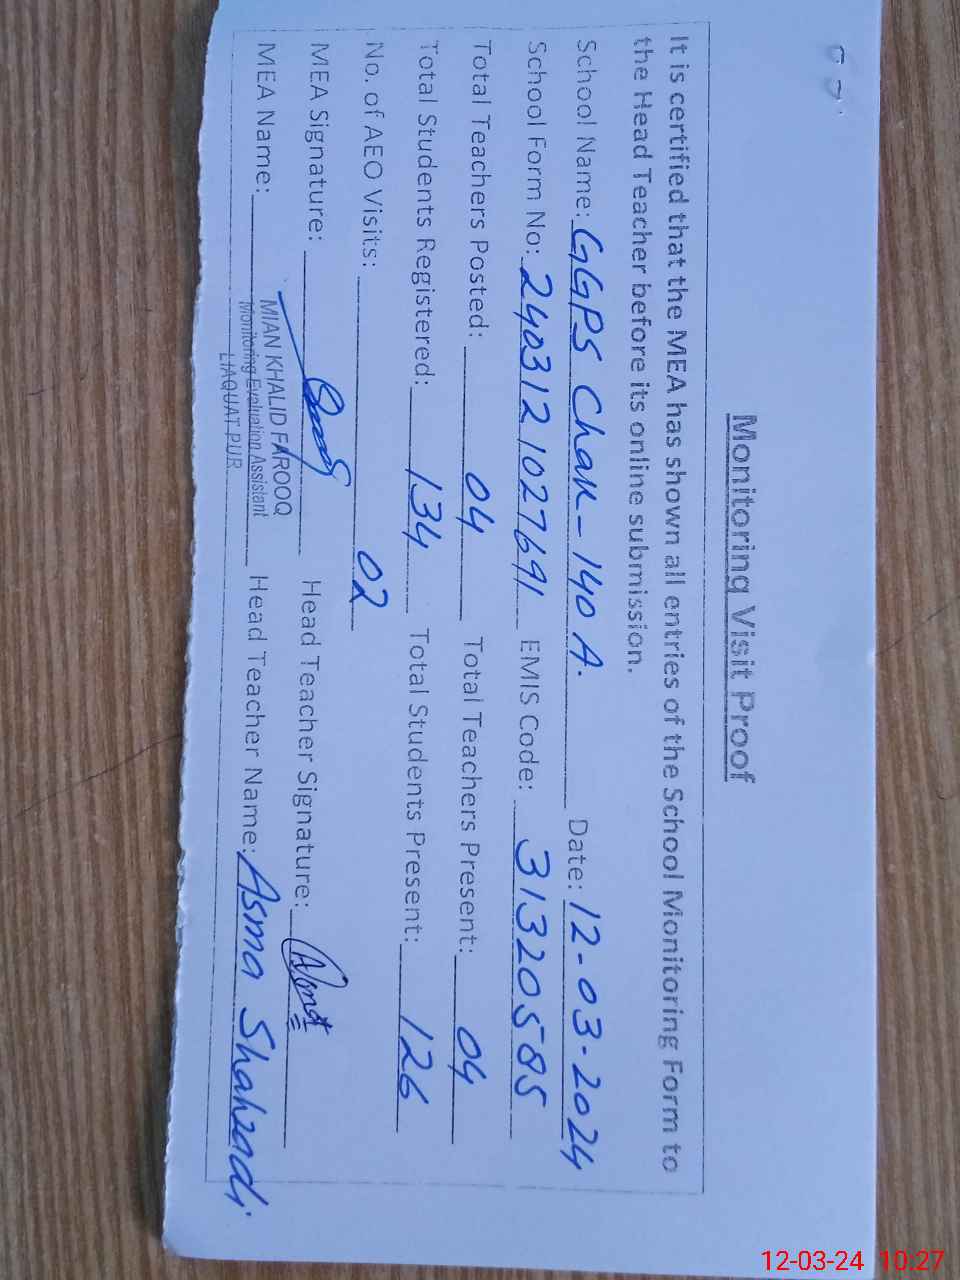 Monitoring Visit Proof
It is certified that the MEA has shown all entries of the School Monitoring Form to
the Head Teacher before its online submission.
School Name: GGPS Chak-140 A. Date: 12-03-2024
School Form No: 240312 1027691 EMIS Code: 31320585
Total Teachers Posted: 04 Total Teachers Present: 04
Total Students Registered: 134 Total Students Present: 126
No. of AEO Visits: 02
MEA Signature: Head Teacher Signature:
MEA Name: Head Teacher Name: Asma Shahzadi
MIAN KHALID FAROOQ
Monitoring Evaluation Assistant
LIAQUAT PUR
12-03-24 10:27